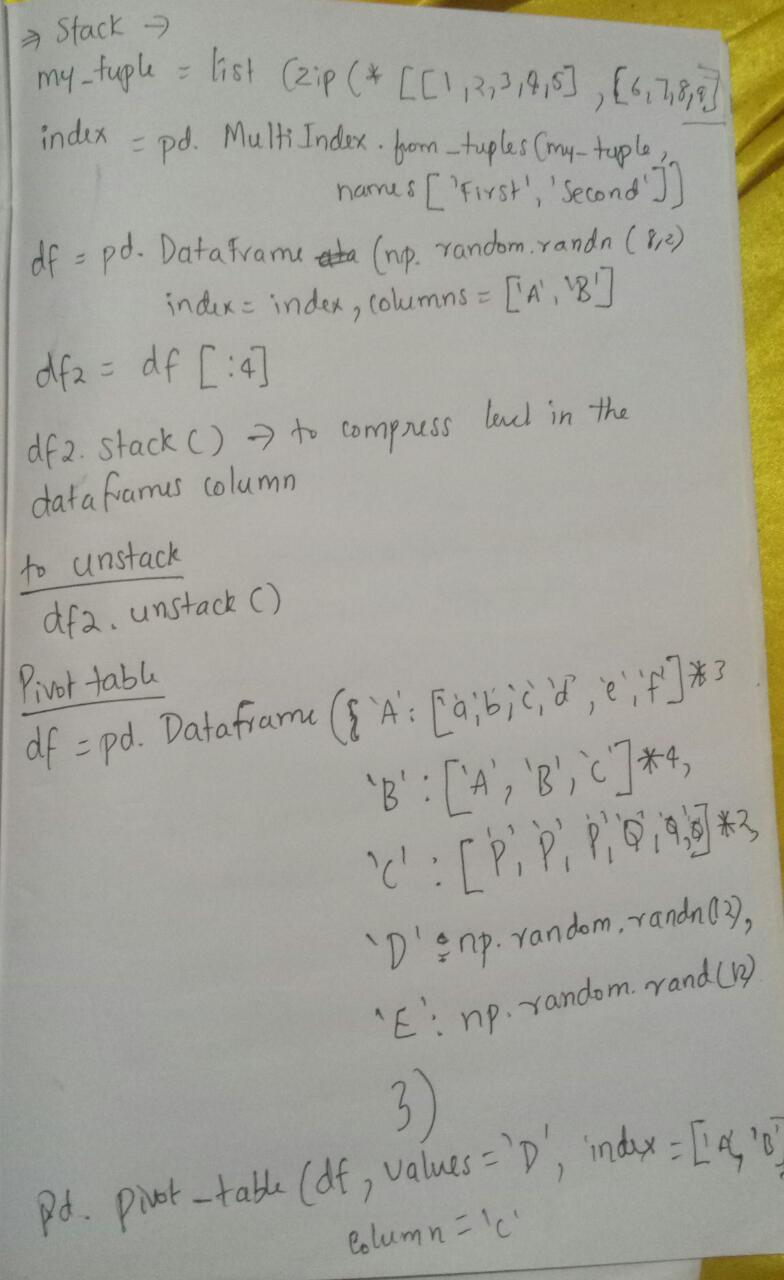 ⇒ Stack →
my_tuple = list (zip (* [[1,2,3,4,5] , [6,7,8,9]
index = pd. MultiIndex . from_tuples (my_tuple,
names ['First', 'Second']]
df = pd. Dataframe (np. random.randn (8,2)
index = index, columns = ['A', 'B']
df2 = df [:4]
df2. stack () → to compress level in the
dataframes column
to unstack
df2. unstack ()
Pivot table
df = pd. Dataframe ({ 'A': ['a','b','c','d','e','f']*3
'B' : ['A', 'B', 'C']*4,
'C' : ['P', 'P', 'P', 'Q', 'Q', 'Q']*2,
'D' : np. random. randn(12),
'E' : np. random. rand(12)
})
pd. pivot_table (df, values = 'D', index = ['A', 'B']
column = 'C'